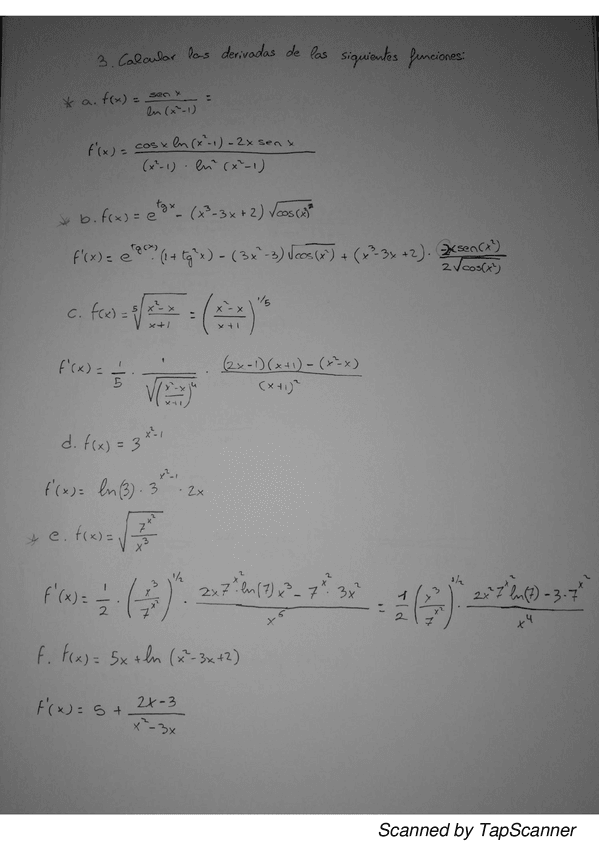 3. Calcular las derivadas de las siguientes funciones:
* a. f(x) = sen x / ln(x²-1) =
f'(x) = (cos x ln(x²-1) - 2x sen x) / ((x²-1) · ln²(x²-1))
* b. f(x) = e^(tg x) - (x³-3x+2) √cos(x)²
f'(x) = e^(tg(x)) · (1+tg²x) - (3x²-3) √cos(x²) + (x³-3x+2) · 2x sen(x²) / (2√cos(x²))
c. f(x) = ⁵√((x²-x)/(x+1)) = ((x²-x)/(x+1))^(1/5)
f'(x) = 1/5 · 1/√((x²-x)/(x+1))⁴ · ((2x-1)(x+1) - (x²-x)) / (x+1)²
d. f(x) = 3^(x²-1)
f'(x) = ln(3) · 3^(x²-1) · 2x
* e. f(x) = √(7^(x²) / x³)
f'(x) = 1/2 · (x³/7^(x²))^(1/2) · (2x 7^(x²) · ln(7) x³ - 7^(x²) · 3x²) / x⁶ = 1/2 (x³/7^(x²))^(1/2) · (2x² 7^(x²) ln(7) - 3·7^(x²)) / x⁴
f. f(x) = 5x + ln (x²-3x+2)
f'(x) = 5 + (2x-3) / (x²-3x)
Scanned by TapScanner